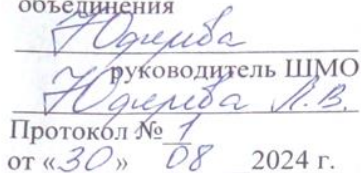 объединения
руководитель ШМО
Л.В.
Протокол № 1
от «30» 08 2024 г.